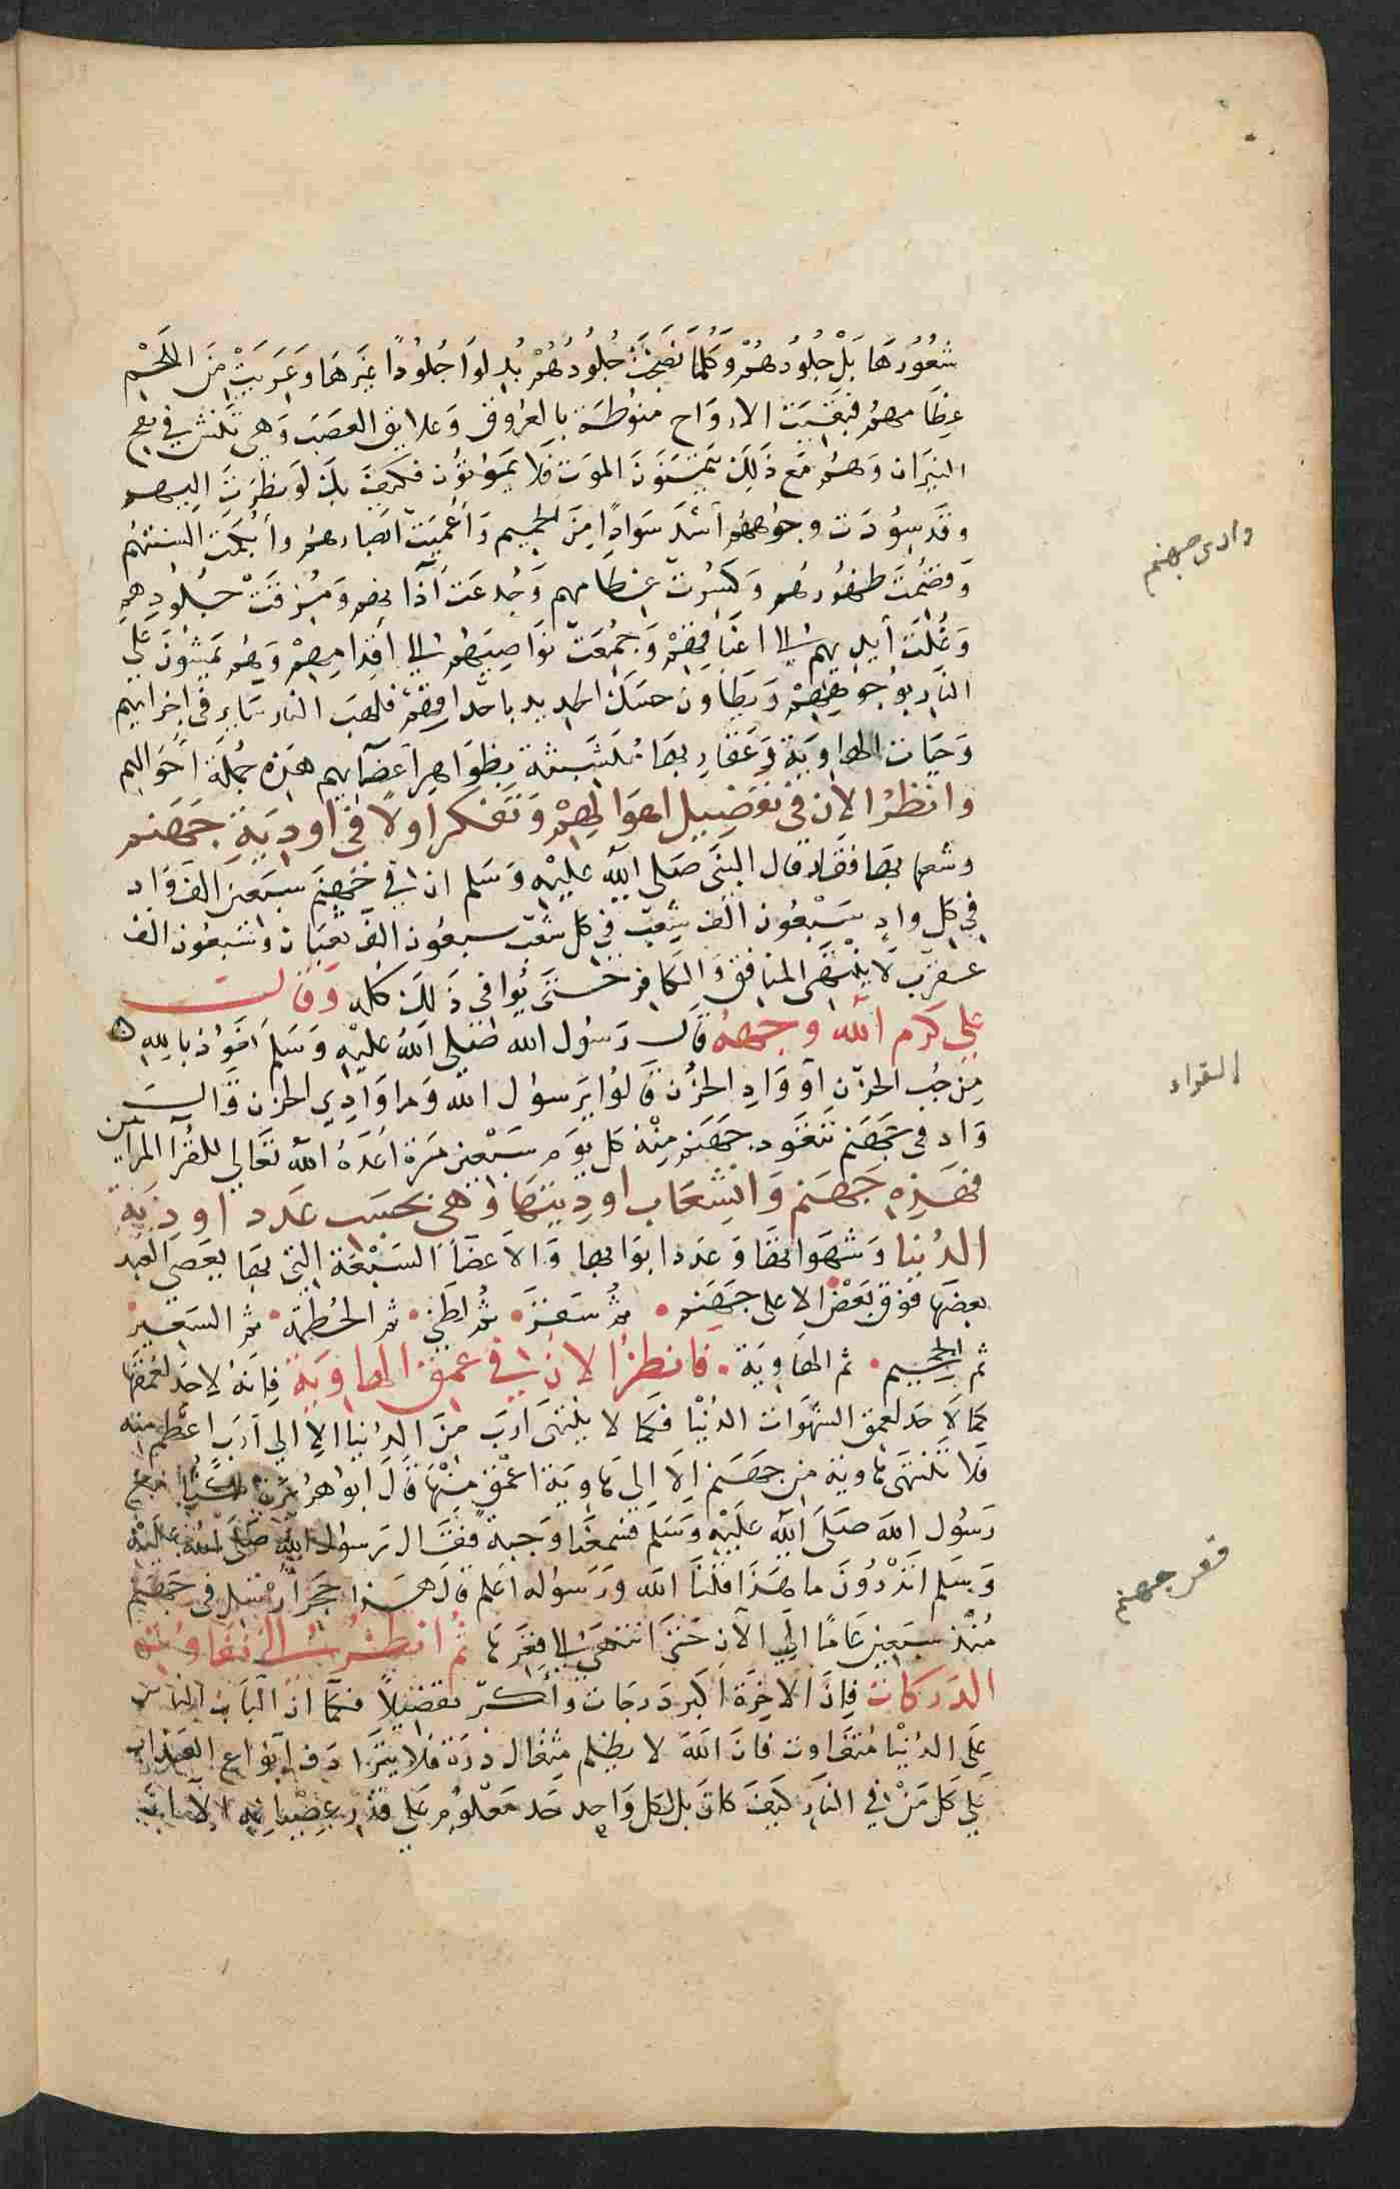 شعورها بل جلودهم وكلما نضجت جلودهم بدلوا جلودا غيرها وعريت من اللحم
عظامهم فبقيت الارواح منوطة بالعروق وعلايق العصب وهي تنش في لفح
النيران وهم مع ذلك يتمنون الموت فلا يموتون فكيف بك لو نظرت اليهم
وقد سودت وجوههم اشد سوادا من الحميم واعميت ابصارهم وابكمت السنتهم
وقصمت ظهورهم وكسرت عظامهم وجدعت آذانهم ومزقت جلودهم
وغلت ايديهم الى اعناقهم وجمعت نواصيهم الى اقدامهم وهم يمشون على
النار بوجوههم ويطاون حسك الحديد باحداقهم فلهب النار سار في اجزايهم
وحيات الهاوية وعقاربها متشبثة بظواهر اعضايهم هذه جملة احوالهم
وانظر الان في تفصيل اهوالهم وتفكر اولا في اودية جهنم
وشعابها فقد قال النبي صلى الله عليه وسلم ان في جهنم سبعين الف واد
في كل واد سبعون الف شعب في كل شعب سبعون الف ثعبان وسبعون الف
عقرب لا ينتهي المنافق والكافر حتى يوافي ذلك كله وقال
علي كرم الله وجهه قال رسول الله صلى الله عليه وسلم تعوذوا بالله
من جب الحزن او وادي الحزن قالوا يرسول الله وما وادي الحزن قال
واد في جهنم تتعوذ جهنم منه كل يوم سبعين مرة اعده الله تعالى للقرآ المرايين
فهذه جهنم وانشعاب اوديتها وهي بحسب عدد اودية
الدنيا وشهواتها وعدد ابوابها والاعضآ السبعة التي بها يعصي العبد
بعضها فوق بعض الاعلى جهنم ثم سقر ثم لظى ثم الحطمة ثم السعير
ثم الجحيم ثم الهاوية فانظر الان في عمق الهاوية فانه لا حد لعمقها
كما لا حد لعمق الشهوات الدنيا فكما لا ينتهى ارب من الدنيا الا الى ارب اعظم منه
فلا تنتهي هاوية من جهنم الا الى هاوية اعمق منها قال ابو هريرة كنا مع
رسول الله صلى الله عليه وسلم فسمعنا وجبة فقال رسول الله صلى الله عليه
وسلم اتدرون ما هذا قلنا الله ورسوله اعلم قال هذا حجر ارسل في جهنم
منذ سبعين عاما الى الآن حتى انتهى الى قعرها ثم انظر الى تفاوت
الدركات فان الاخرة اكبر درجات واكبر تفضيلا فكما ان اكباب الناس
على الدنيا متفاوت فان الله لا يظلم مثقال ذرة فلا يترادف انواع العذاب
على كل من في النار كيف كان بل لكل واحد حد معلوم على قدر عصيانه الا ان
وادى جهنم
القراء
قعر جهنم